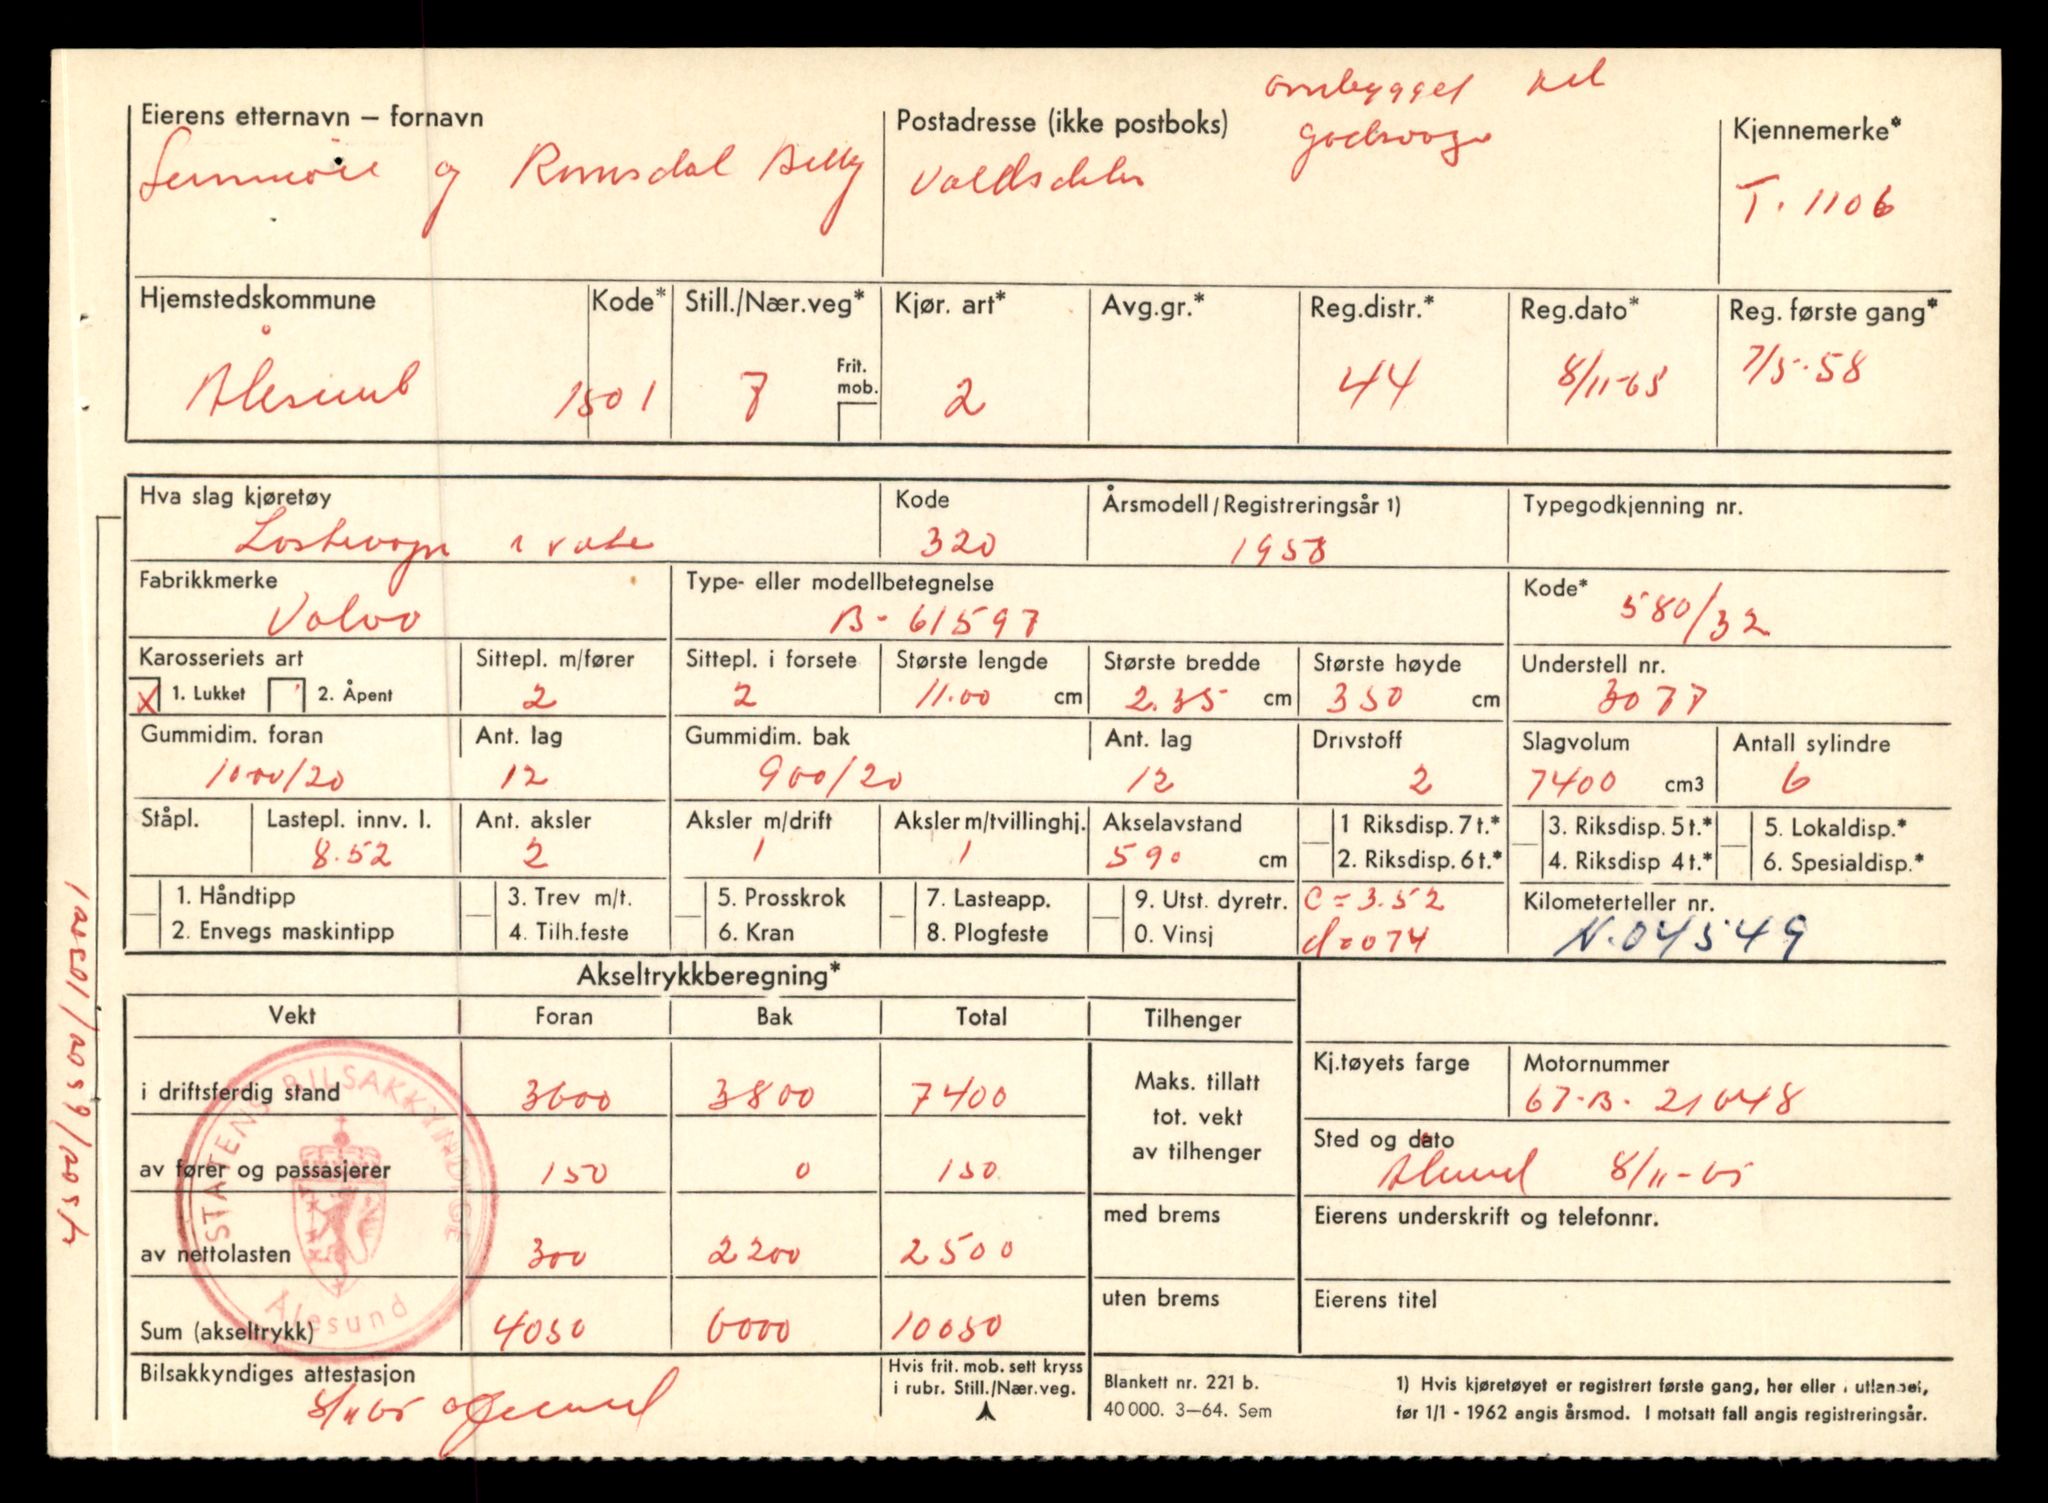 ombygget til
Eierens etternavn – fornavn
Postadresse (ikke postboks)
godsvogn
Kjennemerke*
Sunnmöre og Romsdal Billag
Valldalen
T. 1106
Hjemstedskommune
Kode*
Still./Nær.veg*
Kjør. art*
Avg.gr.*
Reg.distr.*
Reg.dato*
Reg. første gang*
Ålesund
1501
7
Frit. mob.
2
44
8/11-65
7/5-58
Hva slag kjøretøy
Kode
Årsmodell/Registreringsår 1)
Typegodkjenning nr.
Lastevogn i rute
320
1958
Fabrikkmerke
Type- eller modellbetegnelse
Kode*
Volvo
B-61597
580/32
Karosseriets art
Sittepl. m/fører
Sittepl. i forsete
Største lengde
Største bredde
Største høyde
Understell nr.
X 1. Lukket
2. Åpent
2
2
11.00 cm
2.35 cm
350 cm
3077
Gummidim. foran
Ant. lag
Gummidim. bak
Ant. lag
Drivstoff
Slagvolum
Antall sylindre
1000/20
12
900/20
12
2
7400 cm3
6
Ståpl.
Lastepl. innv. l.
Ant. aksler
Aksler m/drift
Aksler m/tvillinghj.
Akselavstand
1 Riksdisp. 7 t.*
3. Riksdisp. 5 t.*
5. Lokaldisp.*
8.52
2
1
1
590 cm
2. Riksdisp. 6 t.*
4. Riksdisp 4 t.*
6. Spesialdisp.*
1. Håndtipp
3. Trev m/t.
5. Prosskrok
7. Lasteapp.
9. Utst. dyretr.
C = 3.52
Kilometerteller nr.
2. Envegs maskintipp
4. Tilh.feste
6. Kran
8. Plogfeste
0. Vinsj
d=074
N.04549
Akseltrykkberegning*
Vekt
Foran
Bak
Total
Tilhenger
i driftsferdig stand
3600
3800
7400
Maks. tillatt
tot. vekt
av tilhenger
Kj.tøyets farge
Motornummer
67-B-21048
av fører og passasjerer
150
0
150
Sted og dato
Ålesund 8/11-65
av nettolasten
300
2200
2500
med brems
Eierens underskrift og telefonnr.
Sum (akseltrykk)
4050
6000
10050
uten brems
Eierens titel
STATENS BILSAKKYNDIGE
Ålesund
Bilsakkyndiges attestasjon
8/11 65
Hvis frit. mob. sett kryss
i rubr. Still./Nær.veg.
Blankett nr. 221 b.
40 000. 3–64. Sem
1) Hvis kjøretøyet er registrert første gang, her eller i utlandet,
før 1/1 - 1962 angis årsmod. I motsatt fall angis registreringsår.